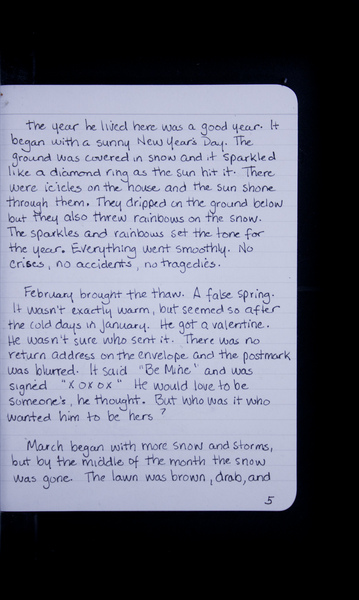 The year he lived here was a good year. It
began with a sunny New Year's Day. The
ground was covered in snow and it sparkled
like a diamond ring as the sun hit it. There
were icicles on the house and the sun shone
through them. They dripped on the ground below
but they also threw rainbows on the snow.
The sparkles and rainbows set the tone for
the year. Everything went smoothly. No
crises, no accidents, no tragedies.
February brought the thaw. A false spring.
It wasn't exactly warm, but seemed so after
the cold days in January. He got a valentine.
He wasn't sure who sent it. There was no
return address on the envelope and the postmark
was blurred. It said "Be Mine" and was
signed "xoxox" He would love to be
someone's, he thought. But who was it who
wanted him to be hers?
March began with more snow and storms,
but by the middle of the month the snow
was gone. The lawn was brown, drab, and
5